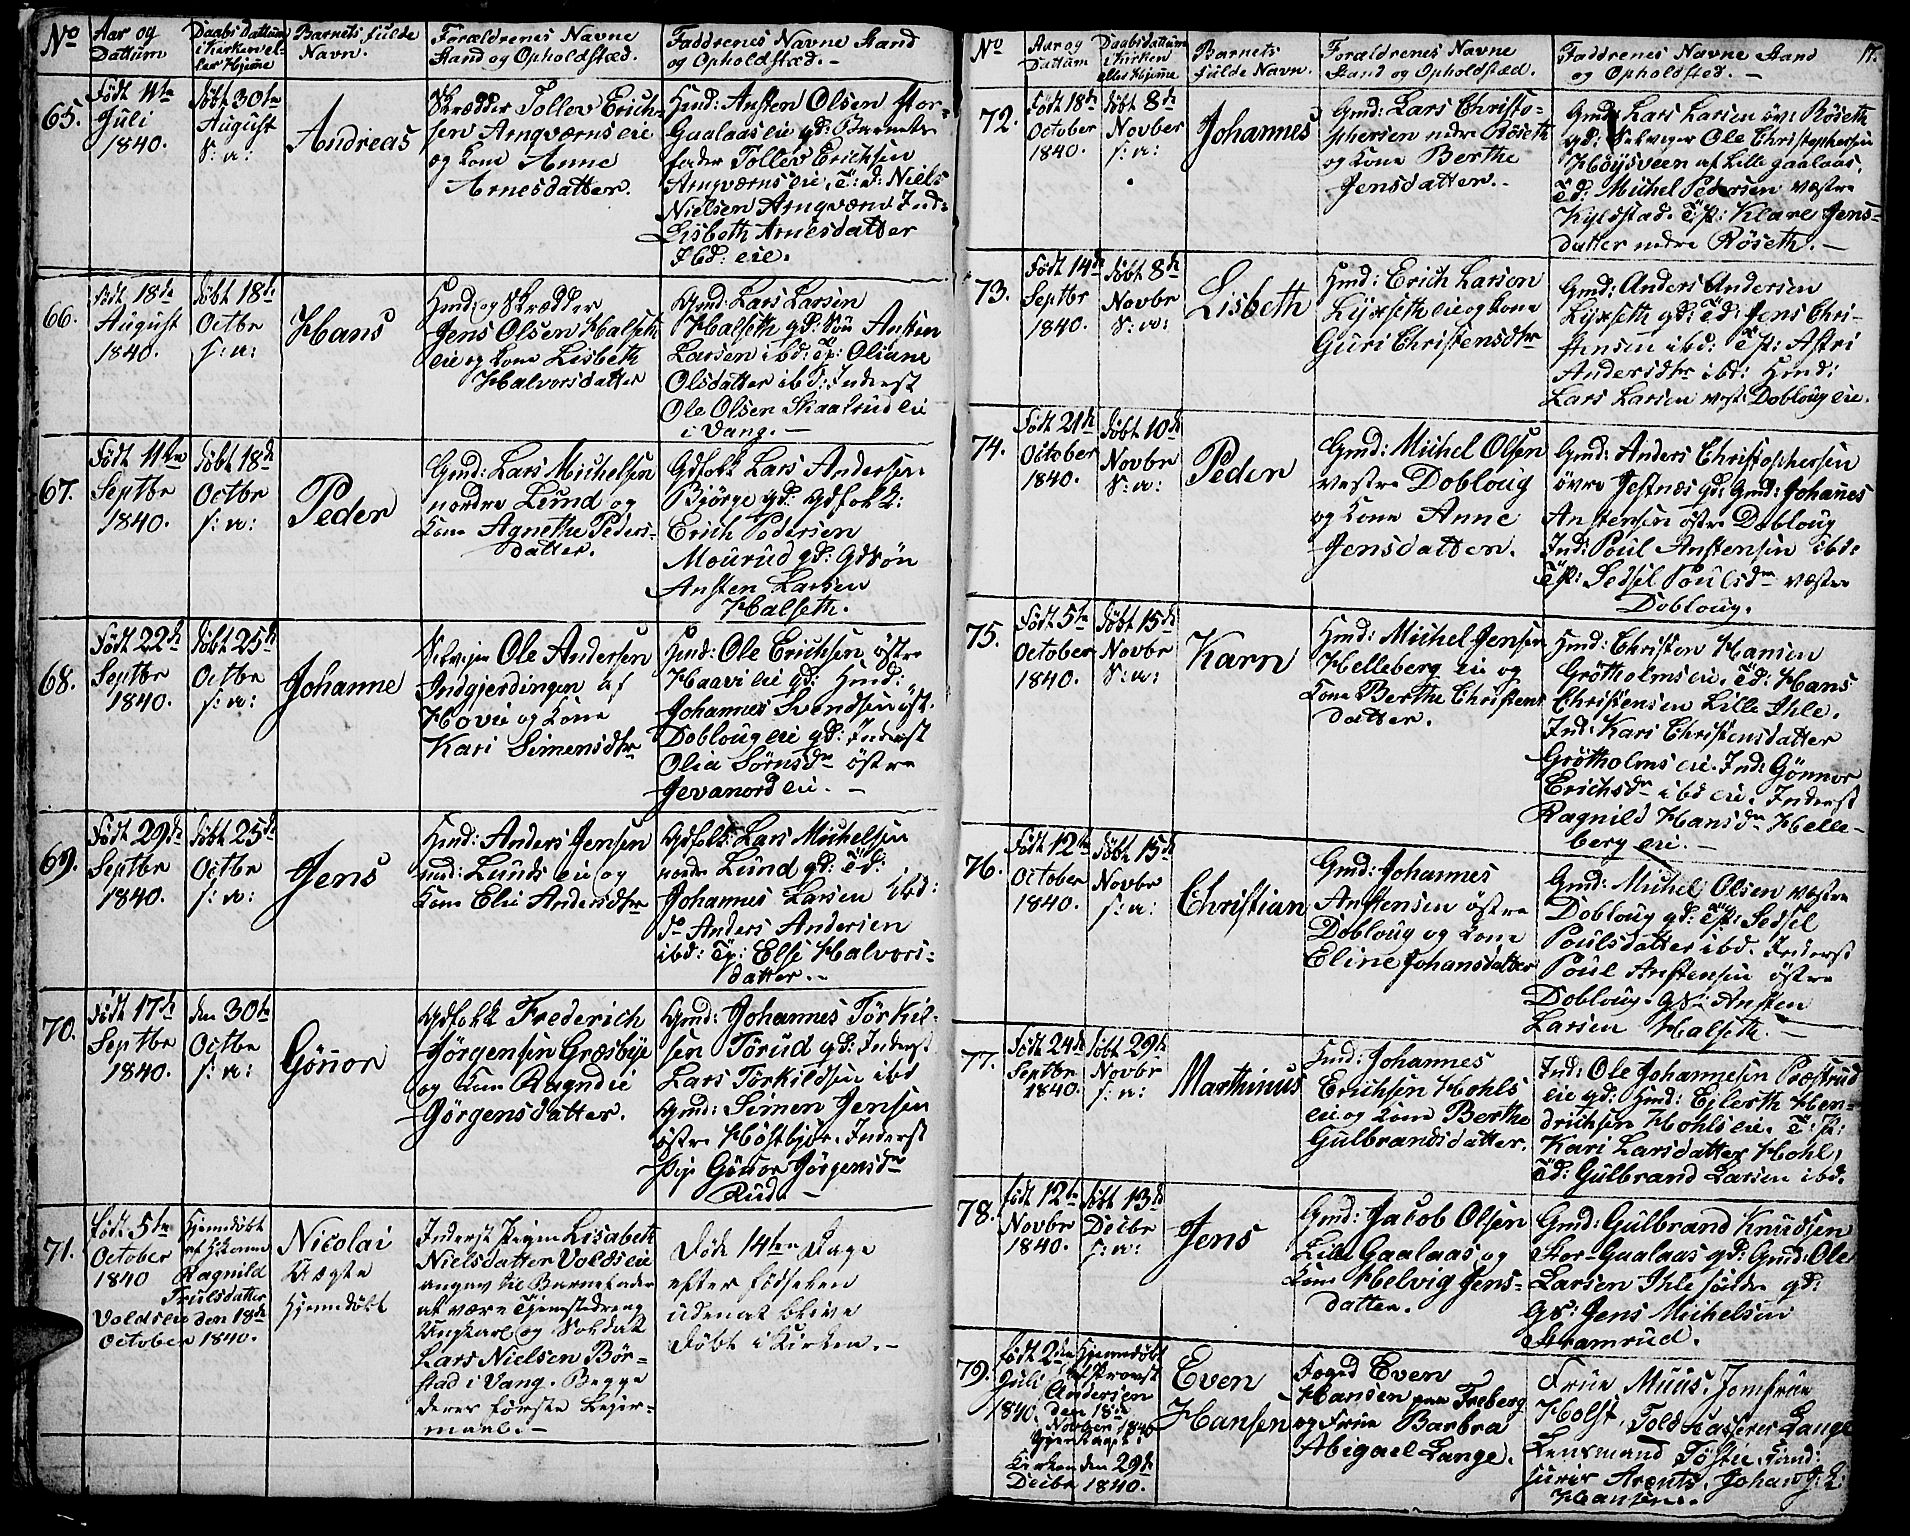 No
Aar og
Dattum
Daabs Dattum
i Kirken el-
ler Hjeme
Barnets fulde
Navn.
Forældrenes Navne
Stand og Opholdstæd.
Faddrenes Navne Stand
og Opholdstæd. -
65.
Født 11te
Juli
1840.
Døbt 30te
August
s: a:
Andreas
Skrædder Tollev Erich-
sen Arnqværns eie
og Kone Anne
Arnesdatter.
Hmd: Ansten Olsen Stor-
Gaalaas eie gd: Barnets
fader Tollev Erichsen
Arnqværns eie, T: d: Niels
Nielsen Arnqværn Ind:
Lisbeth Arnesdatter
Ibd: eie.
66.
født 18de
August
1840.
Døbt 18de
Octbr
s: a:
Hans
Hmd: og Skrædder
Jens Olsen Halseth
eie og Kone Lisbeth
Halvorsdatter
Gmd: Lars Larsen
Halseth gd: Søn Ansten
Larsen ibd: Tp: Oliane
Olsdatter ibd: Inderst
Ole Olsen Skaalrud eie
i Vang. -
67.
Født 11te
Septbr
1840.
Døbt 18de
Octbr
s: a:
Peder
Gmd: Lars Michelsen
nordre Lund og
Kone Agnethe Peders-
datter.
Gdfolk Lars Andersen
Bjørge gd: Gdfolk:
Erich Pedersen
Mourud gd: Gdsøn
Ansten Larsen
Halseth.
68.
Født 22de
Septbr
1840.
Døbt 25de
Octbr
s: a:
Johanne
Selveier Ole Andersen
Indgjerdingen af
Hovie og Kone
Kari Simensdtr
Hmd: Ole Erichsen østre
Haavi eie gd: Hmd:
Johannes Svendsen øst.
Dobloug eie gd: Inderst
Olia Sørnsdr østre
Jevanord eie. -
69.
Født 29de
Septbr
1840.
Døbt 25de
Octbr
s: a:
Jens
Hmd: Anders Jensen
Lunds eie og
Kone Elie Andersdtr
Gdfolk: Lars Michelsen
nordr Lund gd: Td:
Johannes Larsen ibd:
Do Anders Andersen
ibd: Tp: Else Halvors-
datter. -
70.
født 17de
Septbr
1840.
den 30te
Octbr
s: a:
Gønor
Gdfolk Frederich
Jørgensen Græsbye
og Kone Ragndie
Jørgensdatter.
Gmd: Johannes Tørkil-
sen Tørud gd: Inderst
Lars Tørkildsen ibd
Gmd: Simen Jensen
østre Høstbjør. Inderst
Pige Gønor Jørgensdr
Rud. -
71.
født 5te
October
1840
Hjemdøbt
af Konen
Ragnild
Trulsdatter
Volds eie den 18de
October 1840.
Nicolai
Uægte
Hjemdøbt
Inderst Pigen Lisabeth
Nielsdatter Volds eie
angav til Barnefader
at være Tjenstedreng
Ungkarl og Soldat
Lars Nielsen Bør-
stad i Vang. Begge
deres første Leier-
maal. -
Døde 14ten Dage
efter fødselen
uden at blive
døbt i Kirken. -
No
Aar og
Dattum
Daabsdattum
i Kirken
eller Hjeme
Barnets
fulde Navn.
Forældrenes Navne
Stand og Opholdstæd.
Faddrenes Navne Stand
og Opholdstæd. -
17.
72.
Født 18de
October
1840.
Døbt 8de
Novber
s: a:
Johannes
Gmd: Lars Christo-
phersen nedre Røseth
og Kone Berthe
Jensdatter. -
Gmd: Lars Larsen øvr Røseth
gd: Selveger Ole Christophersen
Høysveen af Lille Gaalaas.
Td: Michel Pedersen væstre
Kyldstad. Tp: Klare Jens-
datter nedre Røseth. -
73.
Født 14de
Septbr
1840.
Døbt 8de
Novbr
s: a:
Lisbeth
Hmd: Erich Larsen
Lyxseth eie og Kone
Guri Christensdtr
Gmd: Anders Andersen
Lyxseth gd: Td: Jens Chri-
stensen ibd: Tp: Astri
Andersdtr ibd: Hmd:
Lars Larsen vest. Dobloug eie.
74.
Født 21de
October
1840.
Døbt 10de
Novbr
s: a:
Peder
Gmd: Michel Olsen
Vestre Dobloug
og Kone Anne
Jensdatter.
Gmd: Anders Christophersen
øvre Jestnæs gd: Gmd: Johanes
Anstensen østre Dobloug
Ind: Poul Anstensen ibd:
Tp: Sedsel Poulsdr væstre
Dobloug.
75.
Født 5te
October
1840.
Døbt 15de
Novbr
s: a:
Karn
Hmd: Michel Jensen
Helleberg eie og
Kone Berthe Christens
datter.
Hmd: Christen Hansen
Grøtholms eie. Td: Hans
Christensen Lille Ihle.
Ind: Kari Christensdatter
Grøtholms eie. Ind: Gønnor
Erichsdr ibd eie. Inderst
Ragnild Hansdr Helle-
berg eie. -
76.
Født 12te
October
1840.
Døbt 15de
Novbr
s: a:
Christian
Gmd: Johannes
Anstensen østre
Dobloug og Kone
Eline Johansdatter
Gmd: Michel Olsen væstre
Dobloug gd: Tp: Sedsel
Poulsdatter ibd. Inderst
Poul Anstensen østre
Dobloug. GS: Ansten
Larsen Halseth. -
77.
Født 24de
Septbr
1840.
Døbt 29de
Novbr
s: a:
Marthinus
Hmd: Johannes
Erichsen Hohls
eie og Kone Berthe
Gulbrandsdatter.
Ind: Ole Johannesen Præstrud
eie gd: Hmd: Ejlerth Hen-
drichsen Hohls eie. T: P:
Kari Larsdatter Hohl,
Td: Gulbrand Larsen ibd.
78.
født 12te
Novbr
1840.
Døbt 13de
Decbr
s: a:
Jens
Gmd: Jacob Olsen
Lille Gaalaas og
Kone Helvig Jens-
datter.
Gmd: Gulbrand Knudsen
Stor-Gaalaas gd: Gmd: Ole
Larsen Ihle søndre gd:
GS: Jens Michelsen
Stramrud.
79.
født 2den
Juli
1840.
Hjemdøbt
af Provst
Andersen
den 18de
Novber 1840
Kirken den 29de
Decbr 1840.
Even
Hansen
Foged Even
Hansen paa Freberg
og Frue Barbra
Abigael Lange.
Frue Muus, Jomfrue
Holst, Toldkasserer Lange
Lensmand Tøstie,
Arentz, Johan
Hansen.